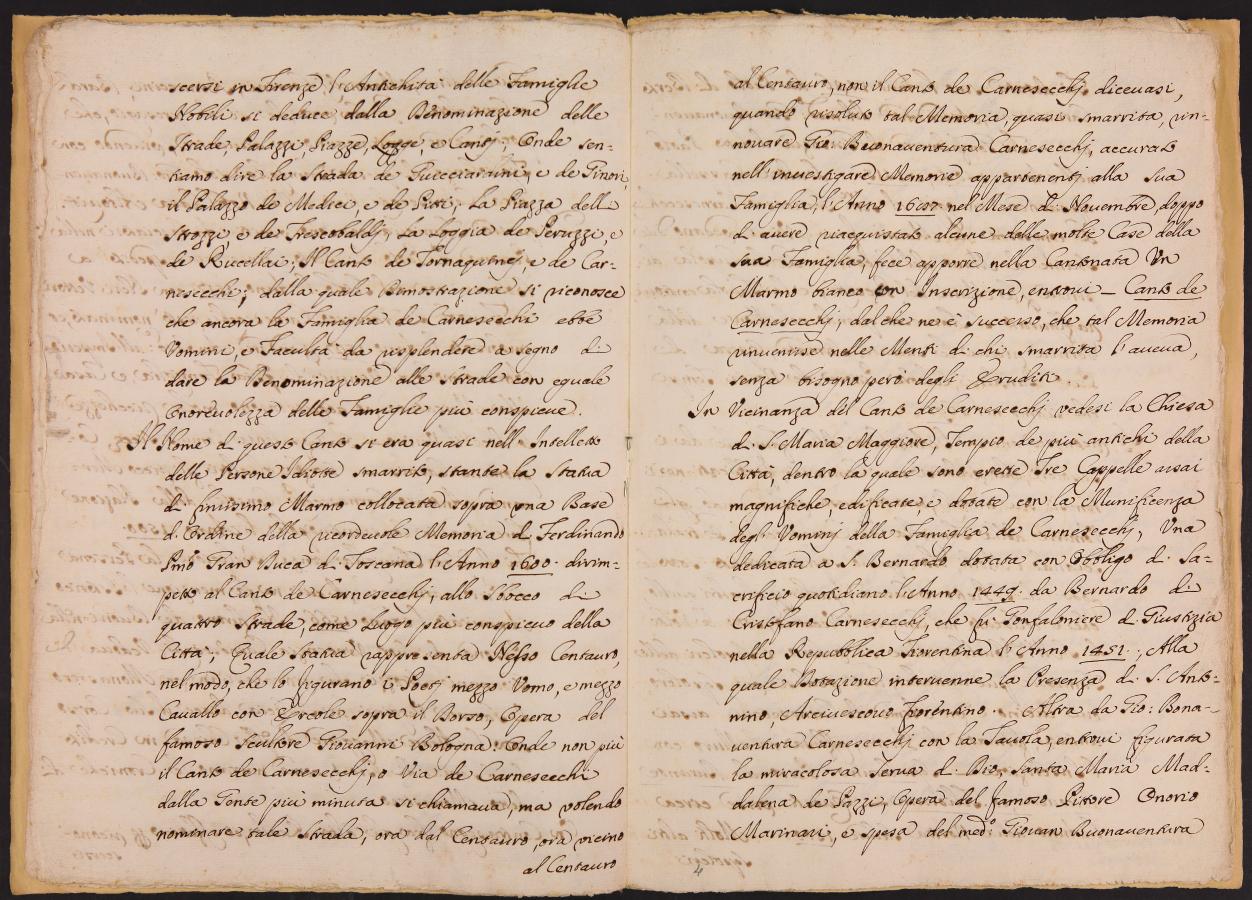 scersi in Firenze l'Antichità delle Famiglie
Nobili si deduce dalla Denominazione delle
Strade, Palazzi, Piazze, Logge, e Cantj; Onde sen-
tiamo dire la Strada de Guicciardini, e de Ginori,
il Palazzo de Medici, e de Pitti; La Piazza delli
Strozzi, e de Frescobaldj, La Loggia de Peruzzi, e
de Rucellai; Il Canto de Tornaquincj, e de Car-
nesecchi; dalla quale Dimostrazione si riconosce
che ancora la Famiglia de Carnesecchi ebbe
Vomini, e Facultà da risplendere a segno di
dare la Denominazione alle Strade con eguale
Onorevolezza delle Famiglie più conspicue.
Il Nome di questo Canto si era quasi nell'Intelletto
delle Persone Idiotte smarrito, stante la Statua
di finissimo Marmo collocata sopra una Base
d'Ordine della ricordevole Memoria di Ferdinando
Pmo Gran Duca di Toscana l'Anno 1600. dirim-
petto al Canto de Carnesecchj, allo Sbocco di
quattro Strade, come Luogo più conspicuo della
Città; Quale Statua rappresenta Nesso Centauro,
nel modo, che lo figurano i Poetj mezzo Vomo, e mezzo
Cavallo con Ercole sopra il Dorso, Opera del
famoso Scultore Giovanni Bologna: Onde non più
il Canto de Carnesecchj, o Via de Carnesecchi
dalla Gente più minuta si chiamava, ma volendo
nominare tale Strada, ora dal Centauro, ora vicino
al Centauro
al Centauro, non il Canto de Carnesecchj dicevasi,
quando risoluto tal Memoria, quasi smarrita, rin-
novare Gio: Buonaventura Carnesecchj, accurato
nell'investigare Memorie appartenentj alla Sua
Famiglia, l'Anno 1697. nel Mese di Novembre, doppo
di avere riacquistato alcune delle molte Case della
sua Famiglia, fece apporre nella Cantonata Un
Marmo bianco con Inscrizione, entrovi _ Canto de
Carnesecchj; dal che ne è successo, che tal Memoria
rinvenisse nelle Menti di chi smarrita l'aveva,
senza bisogno però degli Eruditi.
In Vicinanza del Canto de Carnesecchj vedesi la Chiesa
di S. Maria Maggiore, Tempio de più antichi della
Città, dentro la quale sono erette Tre Cappelle assai
magnifiche, edificate, e dotate con la Munificenza
degl'Vominj della Famiglia de Carnesecchj, Una
dedicata a S. Bernardo dotata con Obbligo di Sa-
crificio quotidiano l'Anno 1449. da Bernardo di
Cristofano Carnesecchj, che fù Gonfaloniere di Giustizia
nella Repubblica Fiorentina l'Anno 1451., Alla
quale Dotazione intervenne la Presenza di S. Anto-
nino Arcivescovo fiorentino. Altra da Gio: Bona-
ventura Carnesecchj con la Tavola, entrovi figurata
la miracolosa Serva di Dio, Santa Maria Mad-
dalena de Pazzi, Opera del famoso Pittore Onorio
Marinari, e spesa del med.o Giovan Buonaventura
4